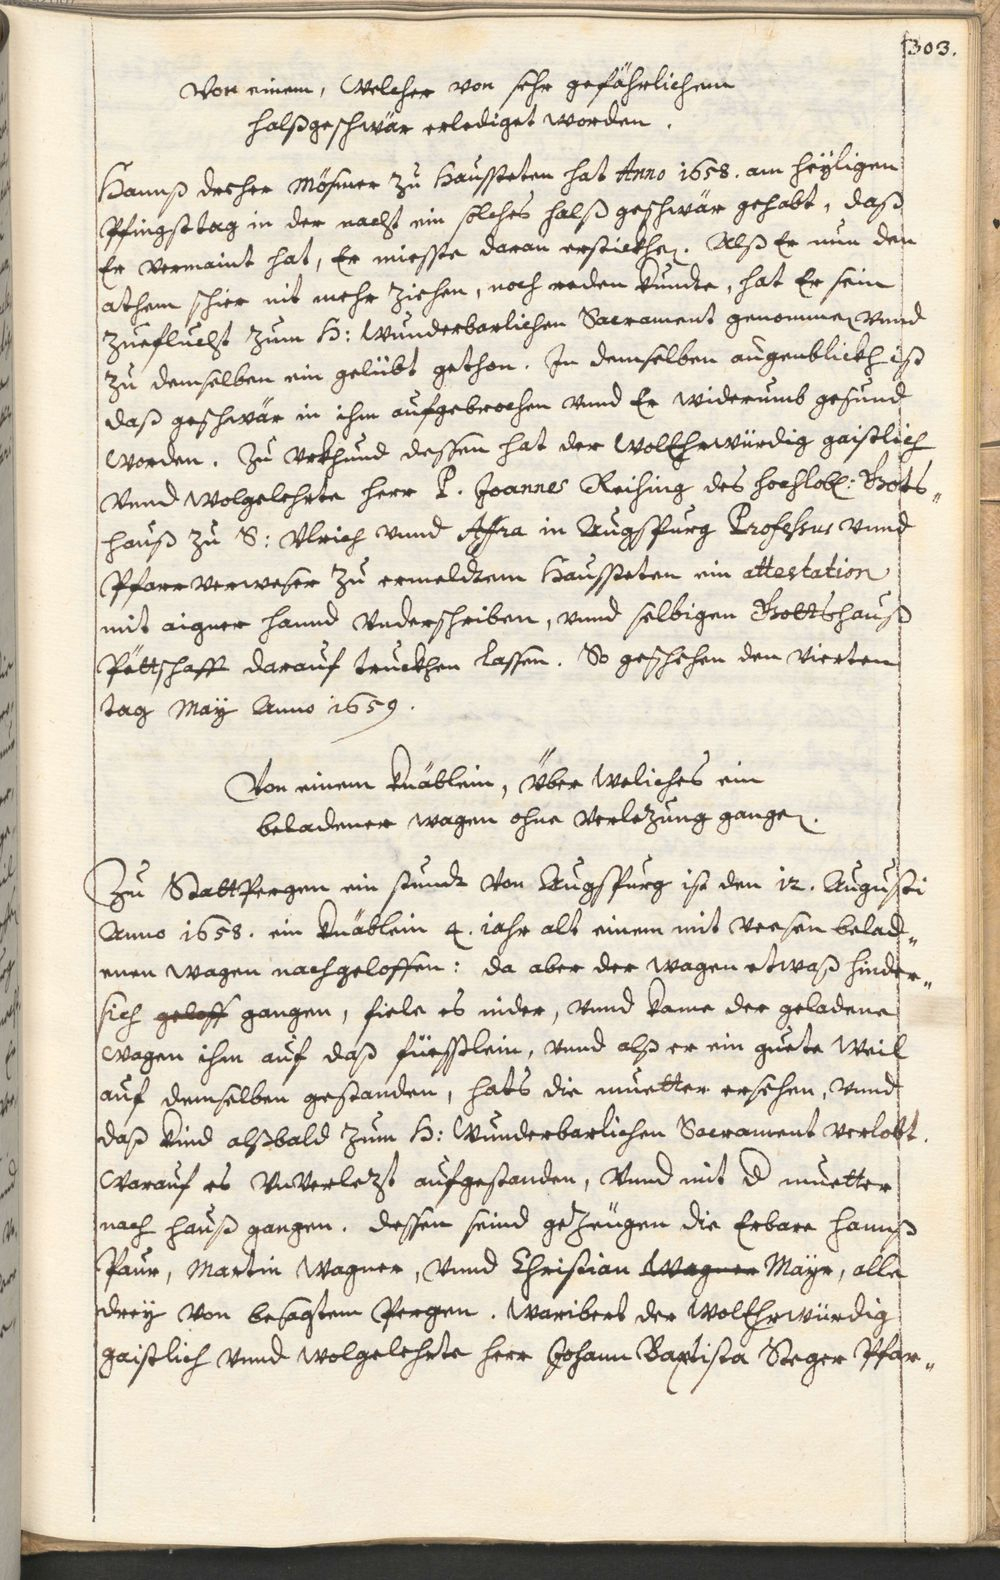 303.
Von einem, Welcher von sehr gefährlichem
halßgeschwär erlediget worden.
Hannß Descher Mößmer zu Haussteten hat Anno 1658. am heyligen
Pfingsttag in der nacht ein solches halß geschwär gehabt, daß
Er vermaint hat, Er miesste daran ersticken. Alß Er nun den
athem schier nit mehr ziehen, noch reden kundte, hat Er sein
Zueflucht zum H: Wunderbarlichen Sacrament genommen vnnd
zu demselben ein gelübt gethon. In demselben augenblickh ist
daß geschwär in ihm aufgebrochen vnnd Er widerumb gesund
worden. Zu Vrkhund dessen hat der WolEhrwürdig gaistlich
vnnd Wolgelehrte herr P. Joannes Reihing des hochlobl: Gotts„
hauß zu S: Vlrich vnnd Affra in Augspurg Professus vnnd
Pfarrverweser zu ermeldtem Haussteten ein attestation
mit aigner hannd vnderschriben, vnnd selbigen Gottshauß
Pettschafft darauf truckhen lassen. So geschehen den Vierten
tag May Anno 1659.
Von einem knäblein, über Weliches ein
beladener wagen ohne verlezung gangen.
Zu Stattpergen ein stundt von Augspurg ist den 12. Augusti
Anno 1658. ein knäblein 4. iahr alt einem mit veesen belad„
enen wagen nachgeloffen: da aber der wagen etwaß hinder„
sich geloff gangen, fiele es nider, vnnd kame der geladene
wagen ihm auf daß füeßlein, vnnd alß er ein guete Weil
auf demselben gestanden, hats die muetter ersehen, vnnd
daß kind alßbald zum H: Wunderbarlichen Sacrament verlobt.
Warauf es vnverlezt aufgestanden, vnnd mit d muetter
nach hauß gangen. dessen seind gezeugen die Erbare hannß
Paur, Martin Wagner, vnnd Christian Wagner Mayr, alle
drey von besagtem Pergen. Waribert der WolEhrwürdig
gaistlich vnnd Wolgelehrte herr Johann Baptista Steger Pfar„